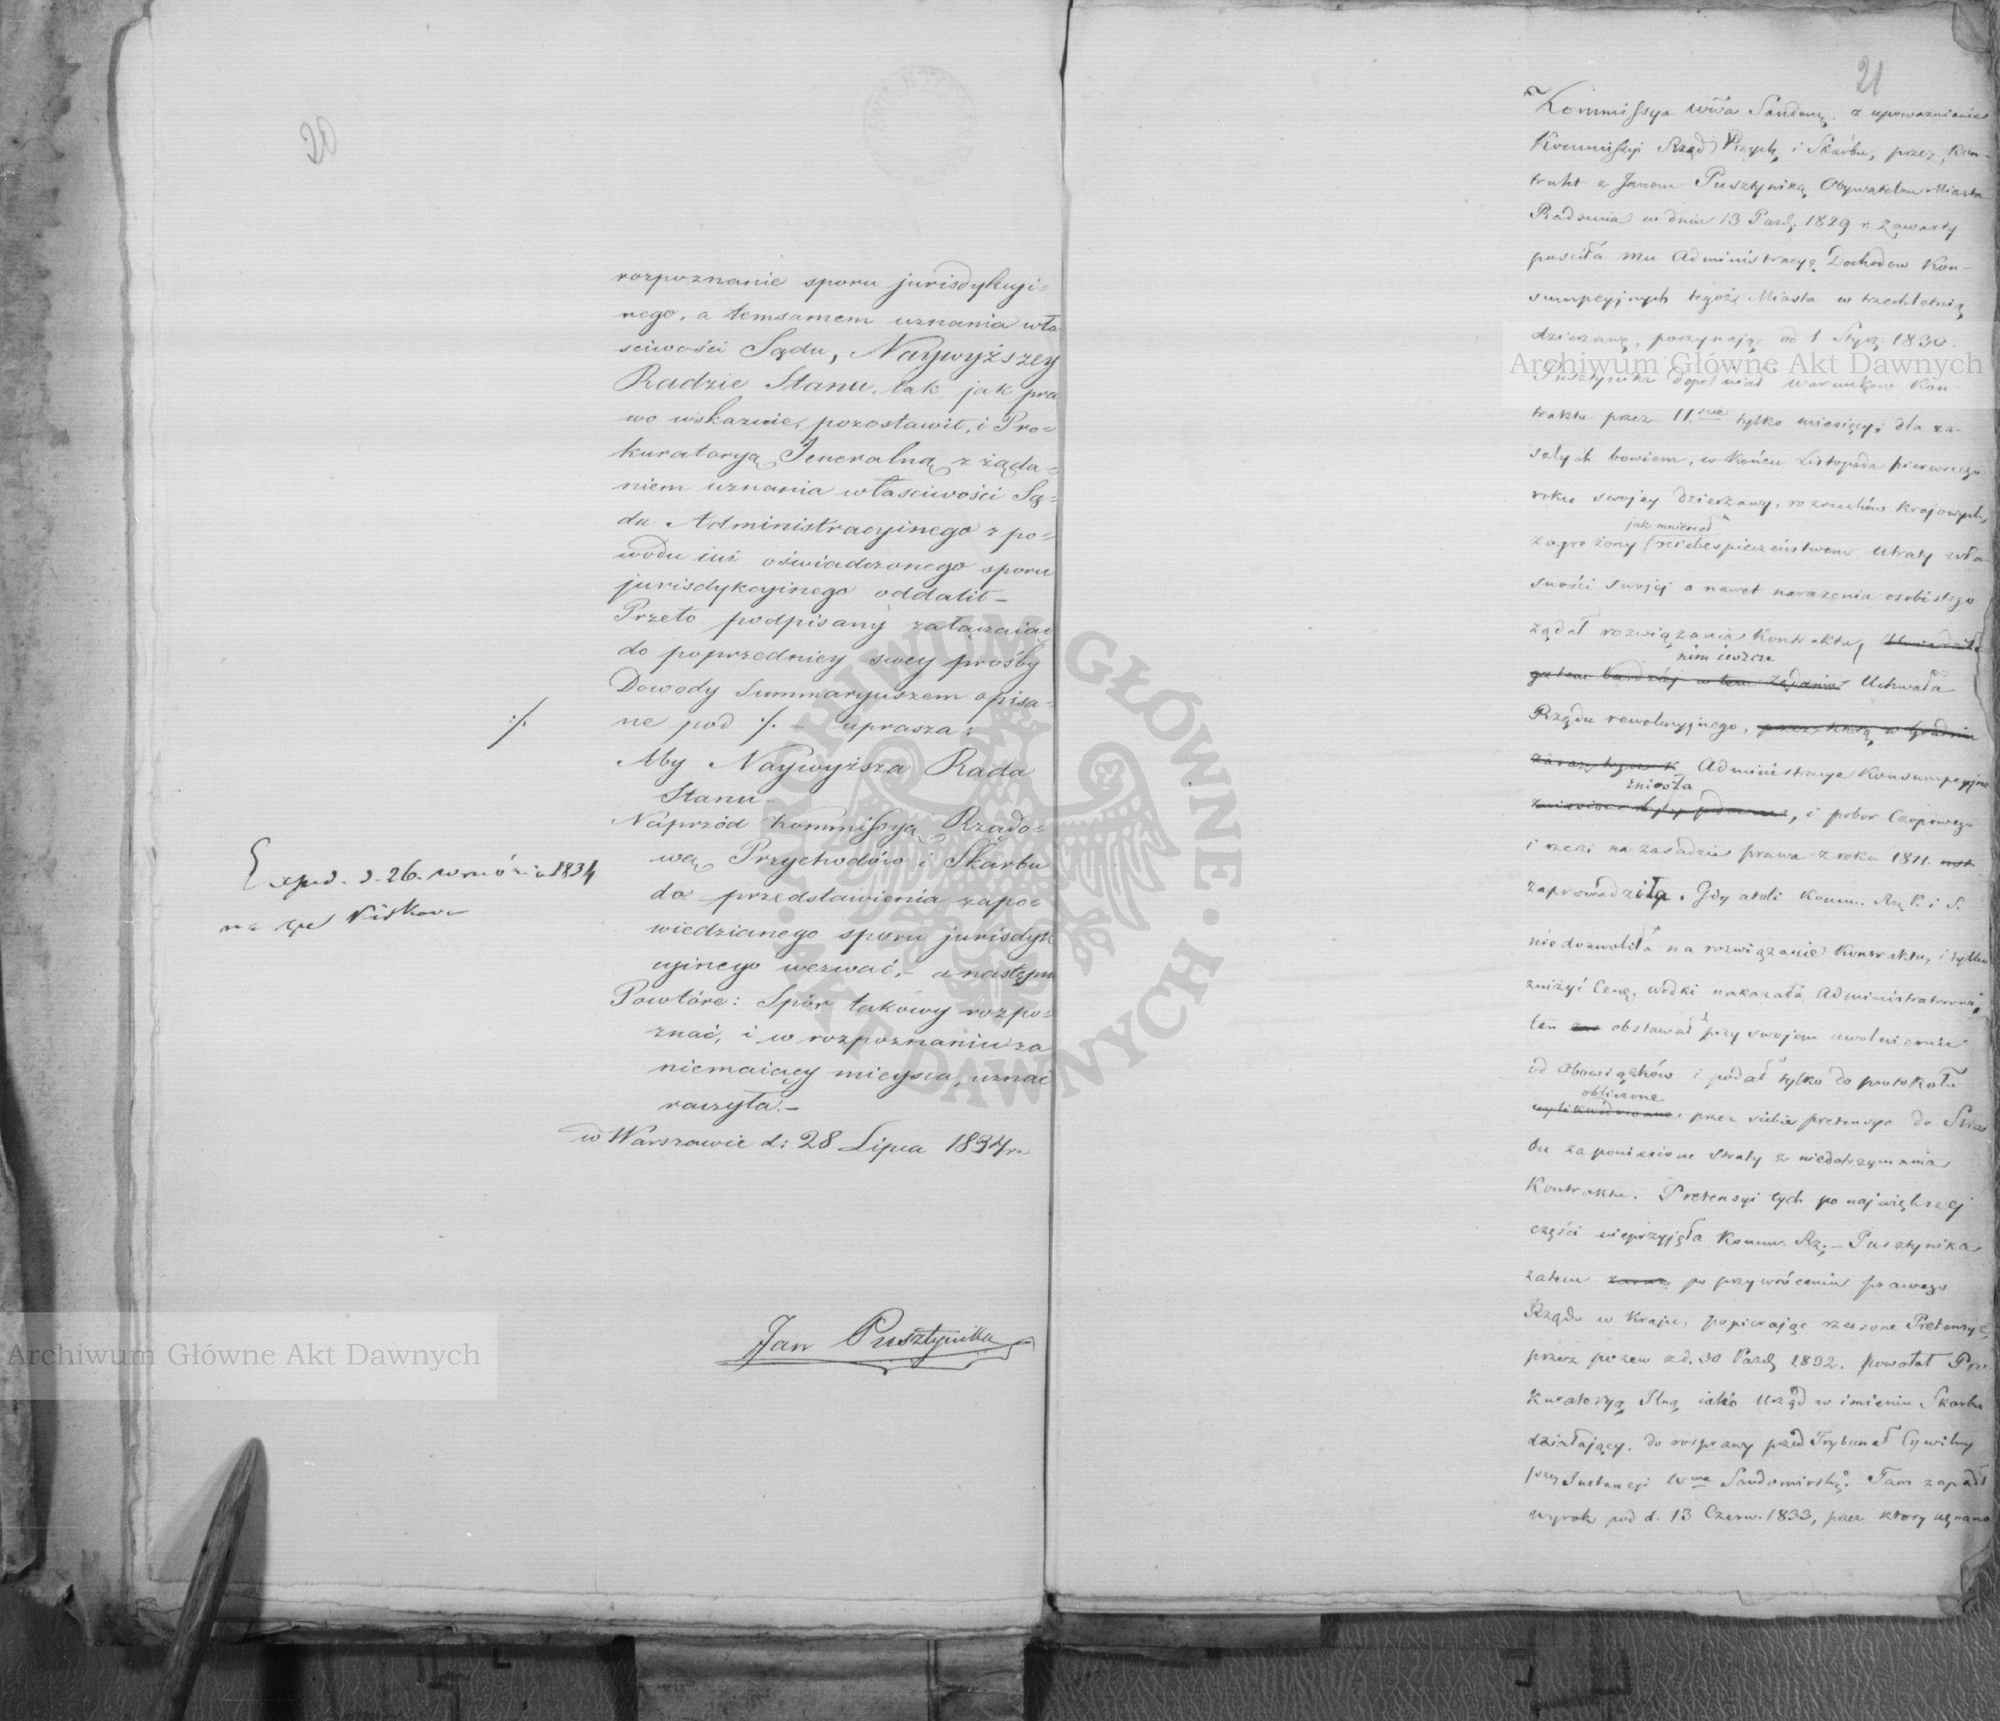 20
rozpoznanie sporu jurisdykcyi=
nego, a temsamem uznania wła
sciwości Sądu, Naywyższey
Radzie Stanu, tak jak pra
wo wskazuie, pozostawił, i Pro=
kuratoryą Jeneralną z żąda=
niem uznania właściwości Są=
du Administracyinego z po=
wodu iuż oświadczonego sporu
jurisdykcyinego oddalił –
Przeto podpisany załączaiąc
do poprzedniey swey prośby
Dowody Summaryuszem opisa=
ne pod ·/. – uprasza:
·/.
Aby Naywyższa Rada
Stanu –
Naprzód Kommissyą Rządo=
wą Przychodów i Skarbu
do przedstawienia zapo=
wiedzianego sporu jurisdyk
cyinego wezwać, – a następn
Powtóre: Spór takowy rozpo=
znać, i w rozpoznaniu za
niemaiący mieysca, uznać
raczyła. –
w Warszawie d: 28 Lipca 1834 r.
Exped. d. 26. września 1834
na
Jan Pusztynika
21
Kommissya Wwa Sandom. z upoważnienia
Kommissyi Rząd Przych. i Skarbu, przez Kon-
trakt z Janem Pusztyniką Obywatelem Miasta
Radomia w dniu 13 Paźdź. 1829 r. zawarty
puściła mu Administracyą Dochodów Kon-
sumpcyjnych tegoż Miasta w trzechletnią
dzierżawę, poczynając od 1 Stycz. 1830.
Pusztynika dopełniał warunków Kon
traktu przez 11.ście tylko miesięcy, dla za-
szłych bowiem, w końcu Listopada pierwszego
roku swojey dzierżawy, rozruchów krajowych,
jak mniemał
zagrożony niebespieczeństwem utraty wła-
sności swojéj a nawet narażenia osobistego
żądał rozwiązania Kontraktu,
nim ieszcze
Uchwała
Rządu rewolucyjnego,
Administracye Konsumpcyjne
zniosła
, i pobor Czopowego
i rzezi na zasadzie prawa z roku 1811.
zaprowadziła. Gdy atoli Komm. Rz. P. i S.
niedozwoliła na rozwiązanie Kontraktu, i tylko
zniżyć Cenę wódki nakazała Administratorowi,
ten obstawał przy swojem uwolnieniu
od obowiązków i podał tylko do protokołu
obliczone
przez siebie pretensye do Skar
bu za poniesione straty z niedotrzymania
Kontraktu. Pretensyi tych po największéj
części nieprzyjęła Komm. Rz. – Pusztynika
zatem po przywróceniu prawego
Rządu w Kraju, popierając rzeczone Pretensye,
przez pozew z d. 30 Paźdź 1832. powołał Pro
kuratoryą Jlną iako Urząd w imieniu Skarbu
działający, do rosprawy przed Trybunał Cywilny
Instancyi Wwa Sandomirsk. Tam zapadł
wyrok pod d. 13 Czerw. 1833, przez który uznano
Archiwum Główne Akt Dawnych
Archiwum Główne Akt Dawnych
ARCHIWUM GŁÓWNE · AKT DAWNYCH ·